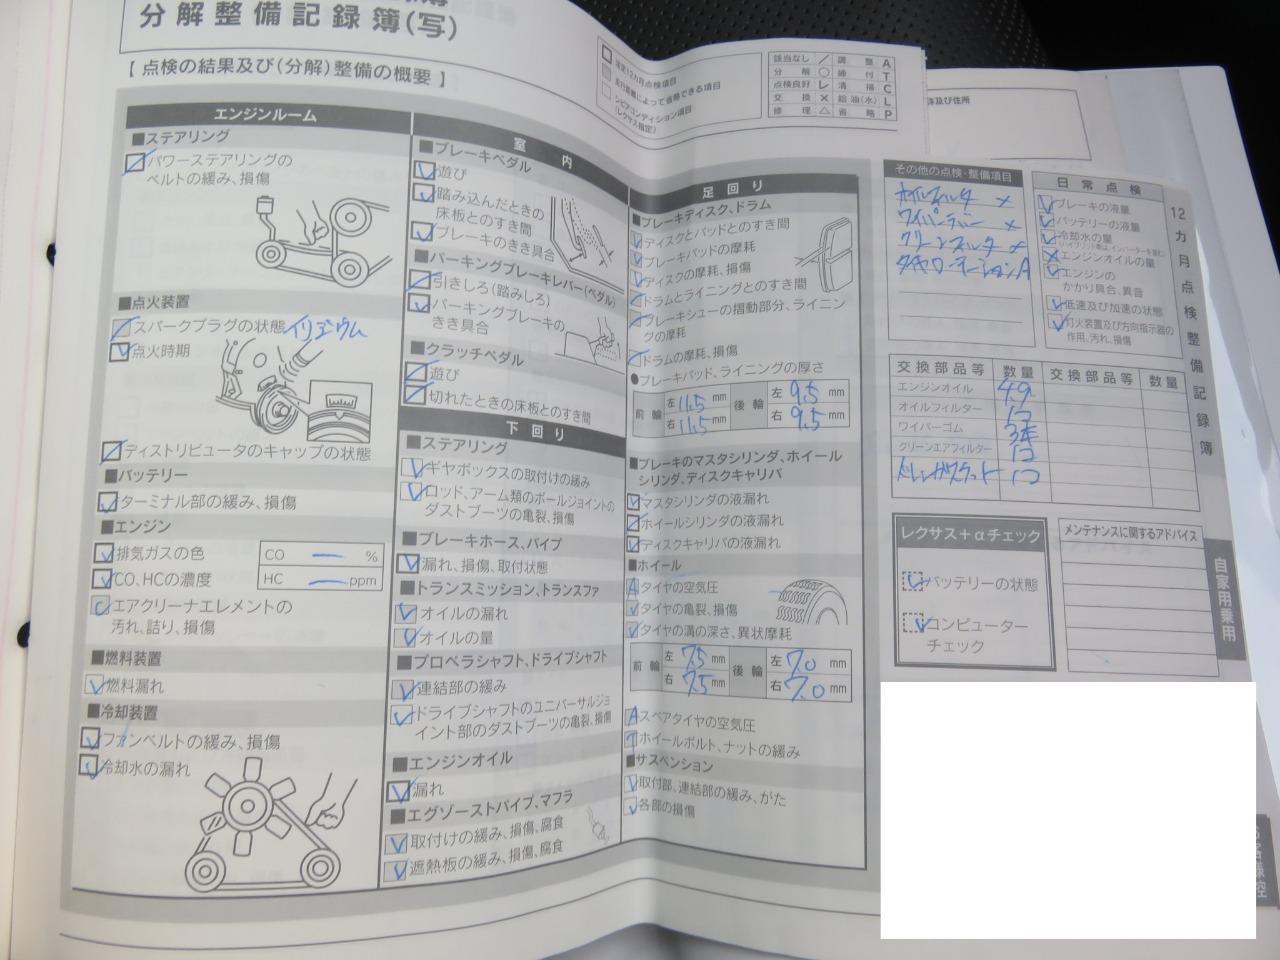 分解整備記録簿(写)
【 点検の結果及び(分解)整備の概要 】
法定12カ月点検項目
走行距離によって省略できる項目
シビアコンディション項目
(レクサス指定)
該当なし / 調整 A
分解 ○ 締付 T
点検良好 レ 清掃 C
交換 × 給油(水) L
修理 △ 省略 P
及び住所
エンジンルーム
■ステアリング
パワーステアリングの
ベルトの緩み、損傷
■点火装置
スパークプラグの状態 イリジウム
点火時期
ディストリビュータのキャップの状態
■バッテリー
ターミナル部の緩み、損傷
■エンジン
排気ガスの色
CO、HCの濃度
CO — %
HC — ppm
エアクリーナエレメントの
汚れ、詰り、損傷
■燃料装置
燃料漏れ
■冷却装置
ファンベルトの緩み、損傷
冷却水の漏れ
室内
■ブレーキペダル
遊び
踏み込んだときの
床板とのすき間
ブレーキのきき具合
■パーキングブレーキレバー(ペダル)
引きしろ(踏みしろ)
パーキングブレーキの
きき具合
■クラッチペダル
遊び
切れたときの床板とのすき間
下回り
■ステアリング
ギヤボックスの取付けの緩み
ロッド、アーム類のボールジョイントの
ダストブーツの亀裂、損傷
■ブレーキホース、パイプ
漏れ、損傷、取付状態
■トランスミッション、トランスファ
オイルの漏れ
オイルの量
■プロペラシャフト、ドライブシャフト
連結部の緩み
ドライブシャフトのユニバーサルジョ
イント部のダストブーツの亀裂、損傷
■エンジンオイル
漏れ
■エグゾーストパイプ、マフラ
取付けの緩み、損傷、腐食
遮熱板の緩み、損傷、腐食
足回り
■ブレーキディスク、ドラム
ディスクとパッドとのすき間
ブレーキパッドの摩耗
ディスクの摩耗、損傷
ドラムとライニングとのすき間
ブレーキシューの摺動部分、ライニン
グの摩耗
ドラムの摩耗、損傷
●ブレーキパッド、ライニングの厚さ
前輪 左 11.5 mm 後輪 左 9.5 mm
右 11.5 mm 右 9.5 mm
■ブレーキのマスタシリンダ、ホイール
シリンダ、ディスクキャリパ
マスタシリンダの液漏れ
ホイールシリンダの液漏れ
ディスクキャリパの液漏れ
■ホイール
A タイヤの空気圧
タイヤの亀裂、損傷
タイヤの溝の深さ、異状摩耗
前輪 左 7.5 mm 後輪 左 7.0 mm
右 7.5 mm 右 7.0 mm
A スペアタイヤの空気圧
T ホイールボルト、ナットの緩み
■サスペンション
取付部、連結部の緩み、がた
各部の損傷
その他の点検・整備項目
オイルフィルター ×
ワイパーラバー ×
クリーンフィルター ×
タイヤローテーション A
日常点検
ブレーキの液量
バッテリーの液量
冷却水の量
エンジンオイルの量
エンジンの
かかり具合、異音
低速及び加速の状態
灯火装置及び方向指示器の
作用、汚れ、損傷
交換部品等 数量 交換部品等 数量
エンジンオイル 4.9
オイルフィルター 1コ
ワイパーゴム
クリーンエアフィルター 1コ
ドレンガスケット 1コ
レクサス+αチェック
バッテリーの状態
コンピューター
チェック
メンテナンスに関するアドバイス
12カ月点検整備記録簿
自家用乗用
お客様控